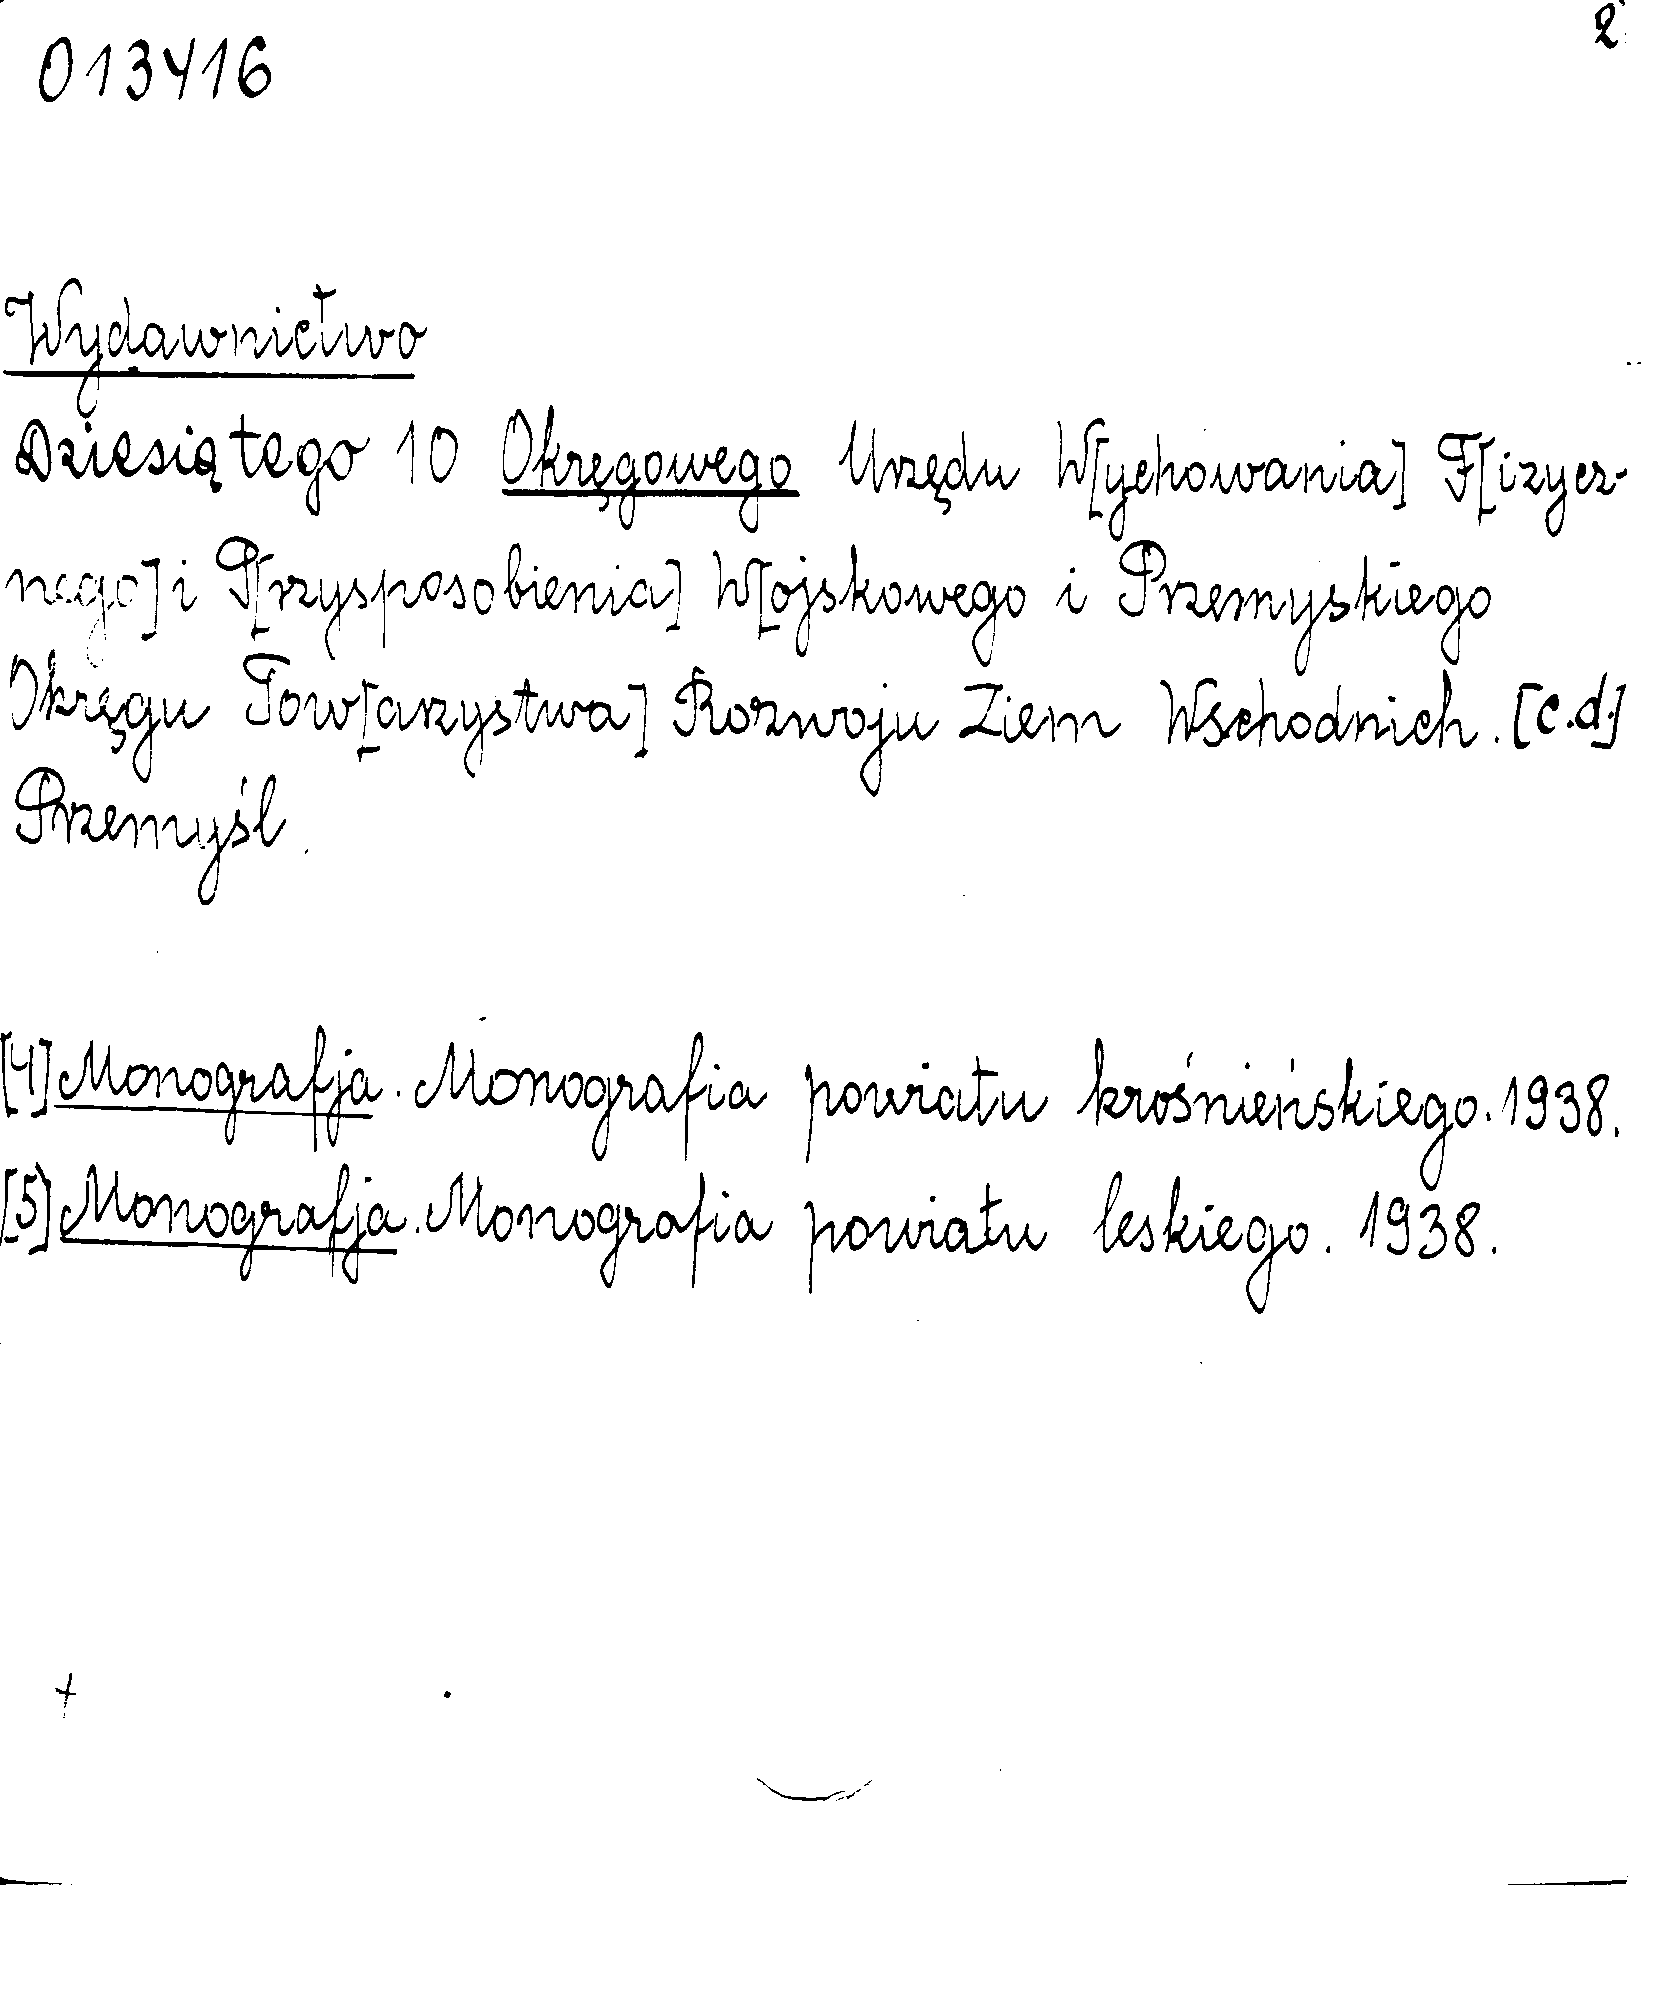 013416
2
Wydawnictwo
Dziesiątego 10 Okręgowego Urzędu W[ychowania] F[izycz-
nego] i P[rzysposobienia] W[ojskowego i Przemyskiego
Okręgu Tow[arzystwa] Rozwoju Ziem Wschodnich. [c.d.]
Przemyśl.
[4] Monografja. Monografia powiatu krośnieńskiego. 1938.
[5] Monografja. Monografia powiatu leskiego. 1938.